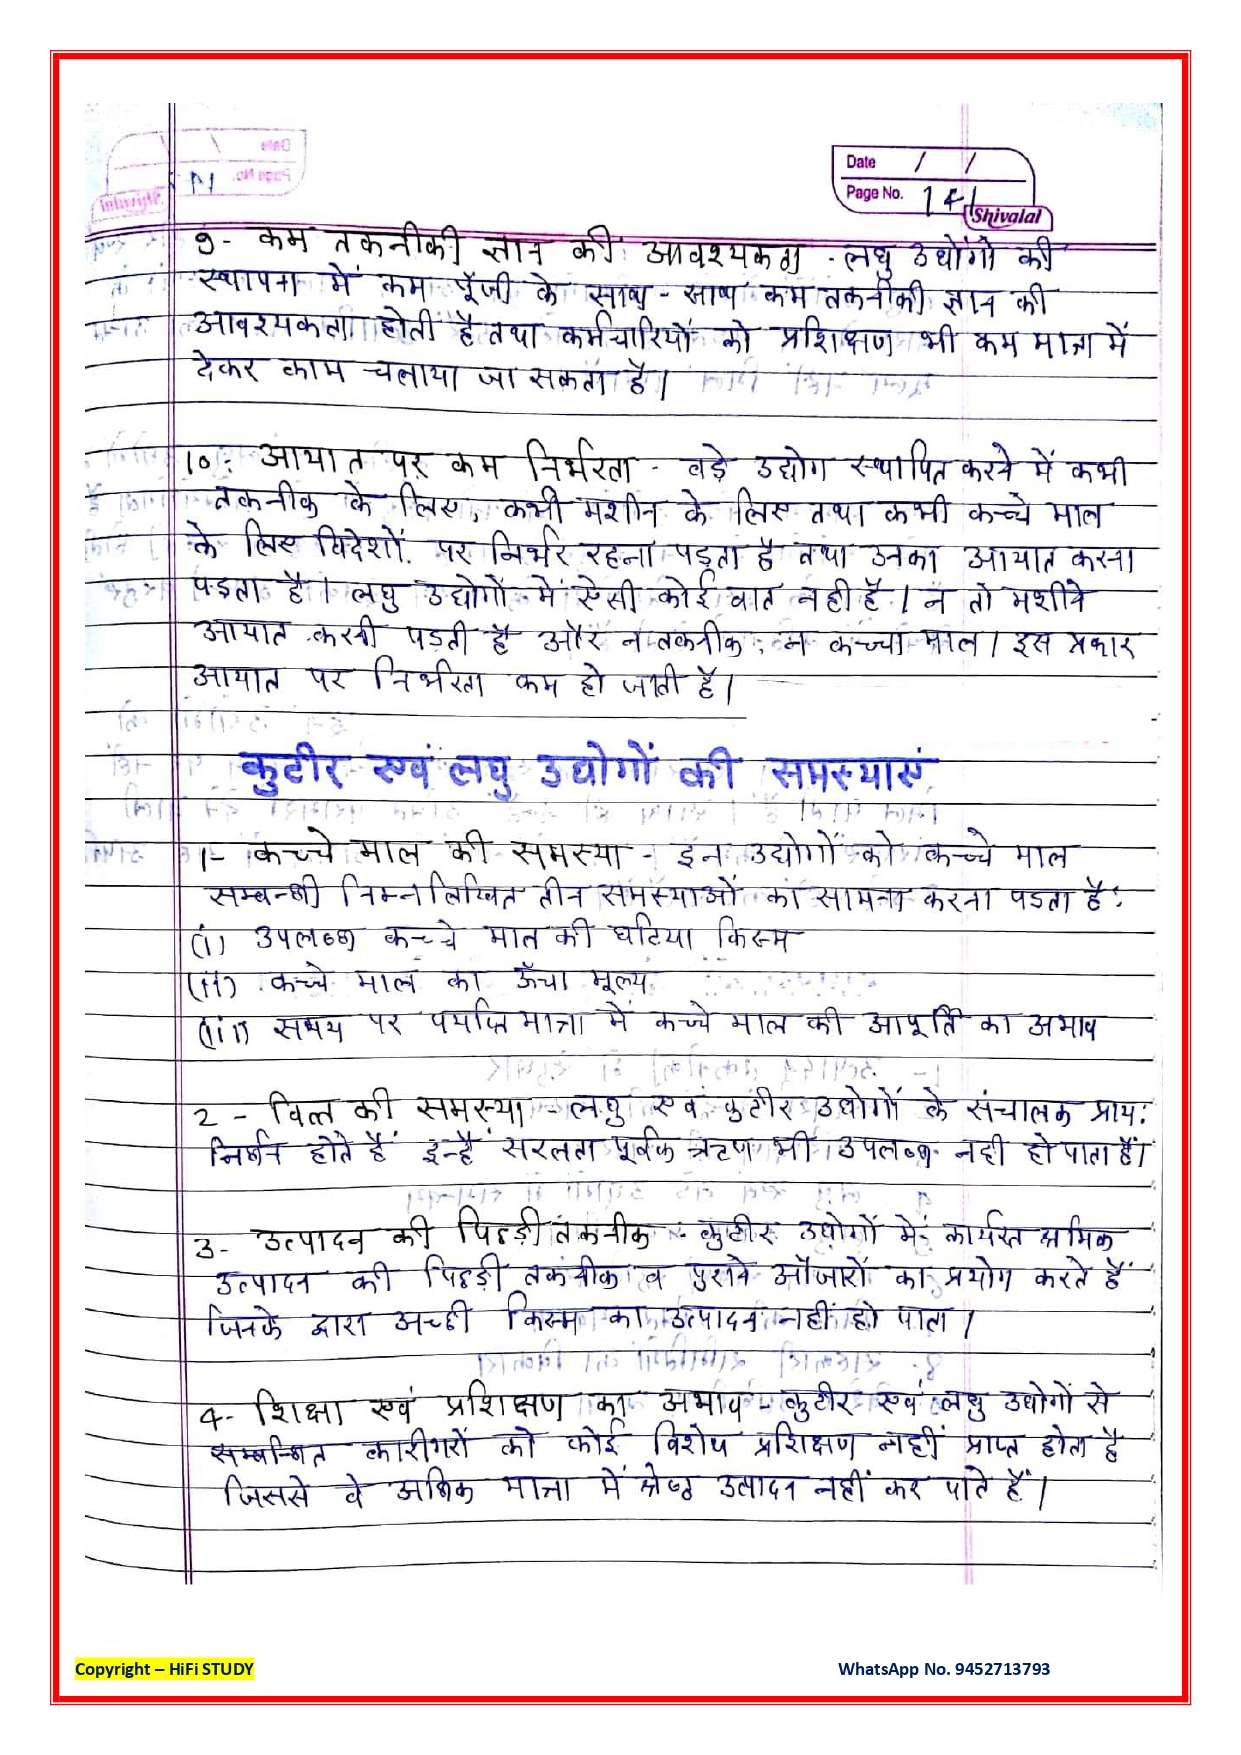 Date / /
Page No. 141
Shivalal
9- कम तकनीकी ज्ञान की आवश्यकता - लघु उद्योगों की
स्थापना में कम पूँजी के साथ - साथ कम तकनीकी ज्ञान की
आवश्यकता होती है तथा कर्मचारियों को प्रशिक्षण भी कम मात्रा में
देकर काम चलाया जा सकता है।
10:- आयात पर कम निर्भरता - बड़े उद्योग स्थापित करने में कभी
तकनीक के लिए, कभी मशीन के लिए तथा कभी कच्चे माल
के लिए विदेशों पर निर्भर रहना पड़ता है तथा उनका आयात करना
पड़ता है। लघु उद्योगों में ऐसी कोई बात नही है। न तो मशीने
आयात करनी पड़ती है और न तकनीक, न कच्चा माल। इस प्रकार
आयात पर निर्भरता कम हो जाती है।
कुटीर एवं लघु उद्योगों की समस्याएं
1- कच्चे माल की समस्या - इन उद्योगों को कच्चे माल
सम्बन्धी निम्नलिखित तीन समस्याओं का सामना करना पड़ता है:
(i) उपलब्ध कच्चे माल की घटिया किस्म
(ii) कच्चे माल का ऊँचा मूल्य
(iii) समय पर पर्याप्त मात्रा में कच्चे माल की आपूर्ति का अभाव
2 - वित्त की समस्या - लघु एवं कुटीर उद्योगों के संचालक प्राय:
निर्धन होते हैं इन्हें सरलता पूर्वक ऋण भी उपलब्ध नही हो पाता है।
3- उत्पादन की पिछड़ी तकनीक - कुटीर उद्योगों में कार्यरत श्रमिक
उत्पादन की पिछड़ी तकनीक व पुराने औजारों का प्रयोग करते हैं
जिनके द्वारा अच्छी किस्म का उत्पादन नहीं हो पाता।
4- शिक्षा एवं प्रशिक्षण का अभाव - कुटीर एवं लघु उद्योगों से
सम्बन्धित कारीगरों को कोई विशेष प्रशिक्षण नहीं प्राप्त होता है
जिससे वे अधिक मात्रा में श्रेष्ठ उत्पादन नहीं कर पाते हैं।
Copyright – HiFi STUDY
WhatsApp No. 9452713793